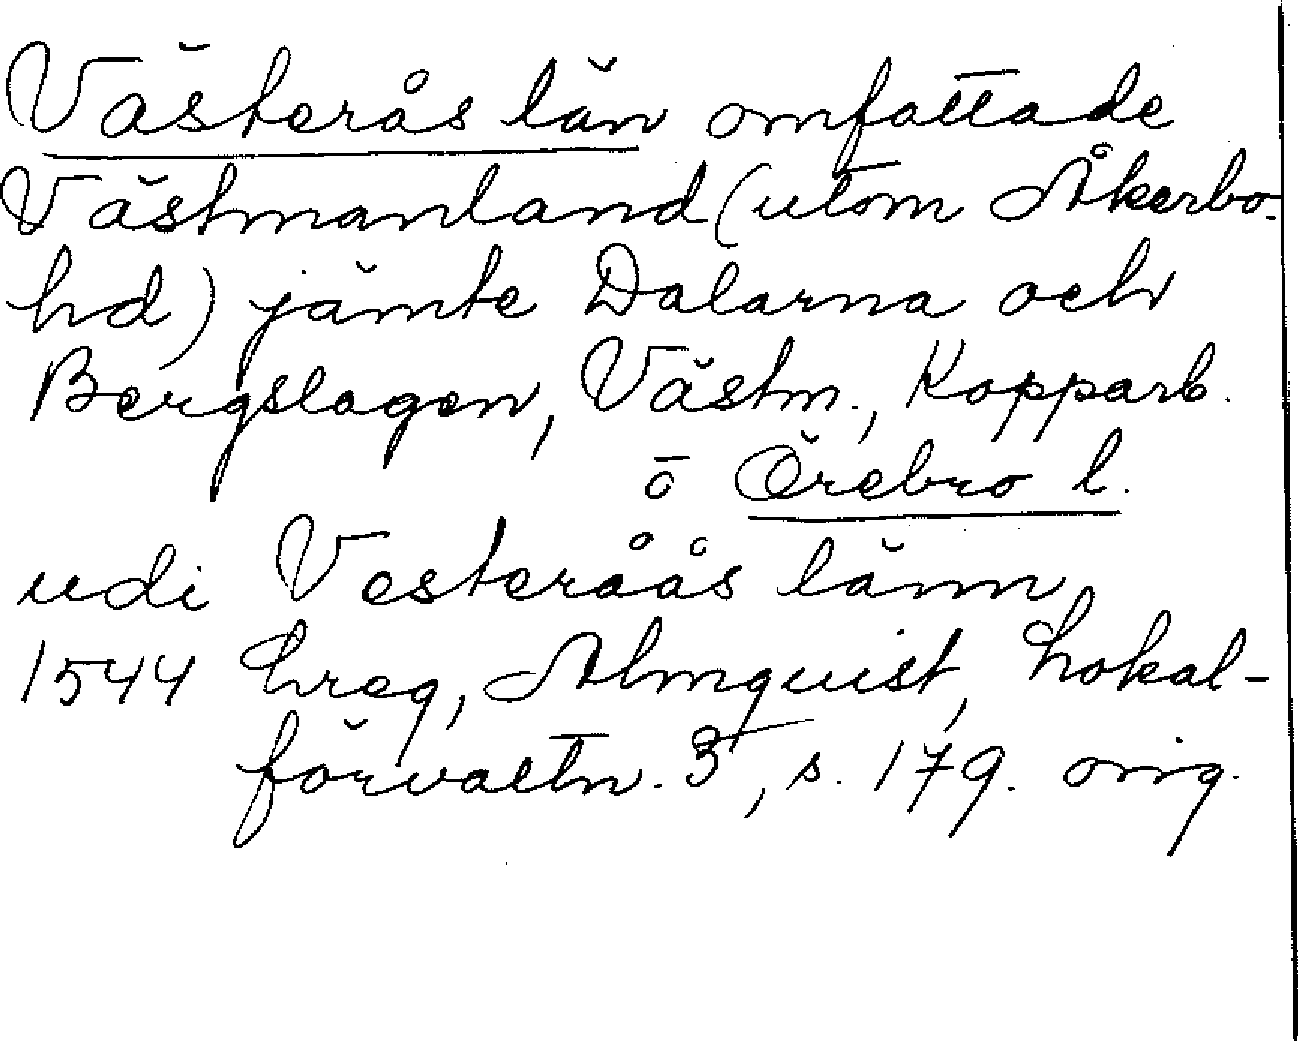 Västerås län omfattade
Västmanland (utom Åkerbo-
hd) jämte Dalarna och
Bergslagen, Västm., Kopparb.
o Örebro l.
udi Vesteråås länn
1544 Lreg, Almquist, Lokal-
förvaltn. 3, s. 179. orig.